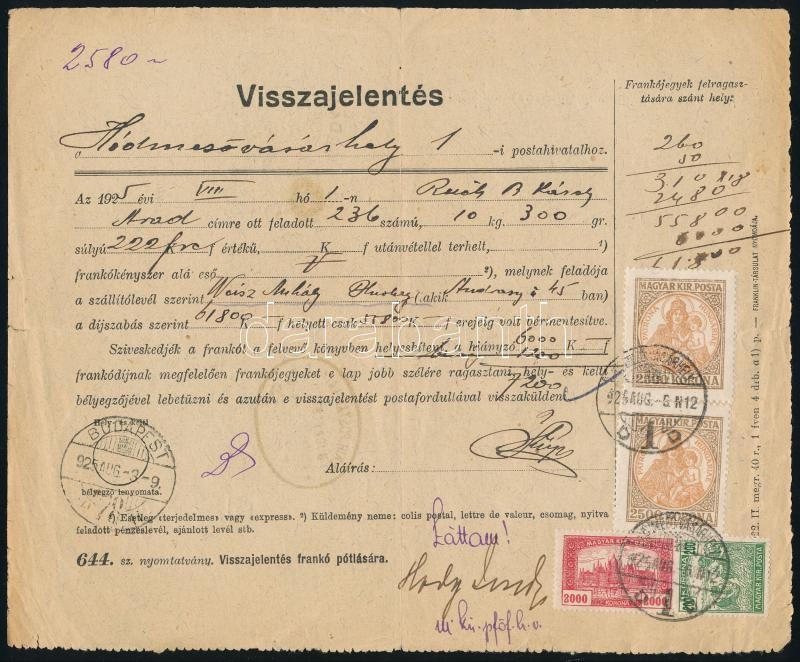 2580
Visszajelentés
Frankójegyek felragasz-
tására szánt hely:
Hódmezővásárhely 1 -i postahivatalhoz.
260
50
310
2480
55800
6000
61800
Az 1925 évi VIII hó 1-n
Arad címre ott feladott 236 számú, 10 kg. 300 gr.
súlyú 222 frc f értékű, K f utánvétellel terhelt, ¹)
frankókényszer alá eső ²), melynek feladója
a szállítólevél szerint Weisz Mihály (akik Andrássy 45 ban)
a díjszabás szerint 61800 K f helyett csak 55800 K f erejéig volt bérmentesítve.
Sziveskedjék a frankót a felvevő könyvben helyesbíteni, a hiányzó 6000 K f
1200
frankódíjnak megfelelően frankójegyeket e lap jobb szélére ragasztani, hely- és kelti
7200
bélyegzőjével lebetűzni és azután e visszajelentést postafordultával visszaküldeni.
Hely- és kelti
BUDAPEST
925 AUG. -3 -9.
72
bélyegző lenyomata.
Aláírás:
¹) Esetleg «terjedelmes» vagy «express». ²) Küldemény neme: colis postal, lettre de valeur, csomag, nyitva
feladott pénzeslevél, ajánlott levél stb.
644. sz. nyomtatvány. Visszajelentés frankó pótlására.
Láttam!
m. kir. pfőf. h. v.
MAGYAR KIR. POSTA
2500 KORONA
925 AUG. -6. N12
1
MAGYAR KIR. POSTA
2500 KORONA
MAGYAR KIR. POSTA
2000 KORONA 2000
925 AUG. -6. N12
1
MAGYAR KIR. POSTA
200
22. II. megr. 40 r., 1 íven 4 drb. a 1) p. — FRANKLIN-TÁRSULAT NYOMDÁJA.
darabanth